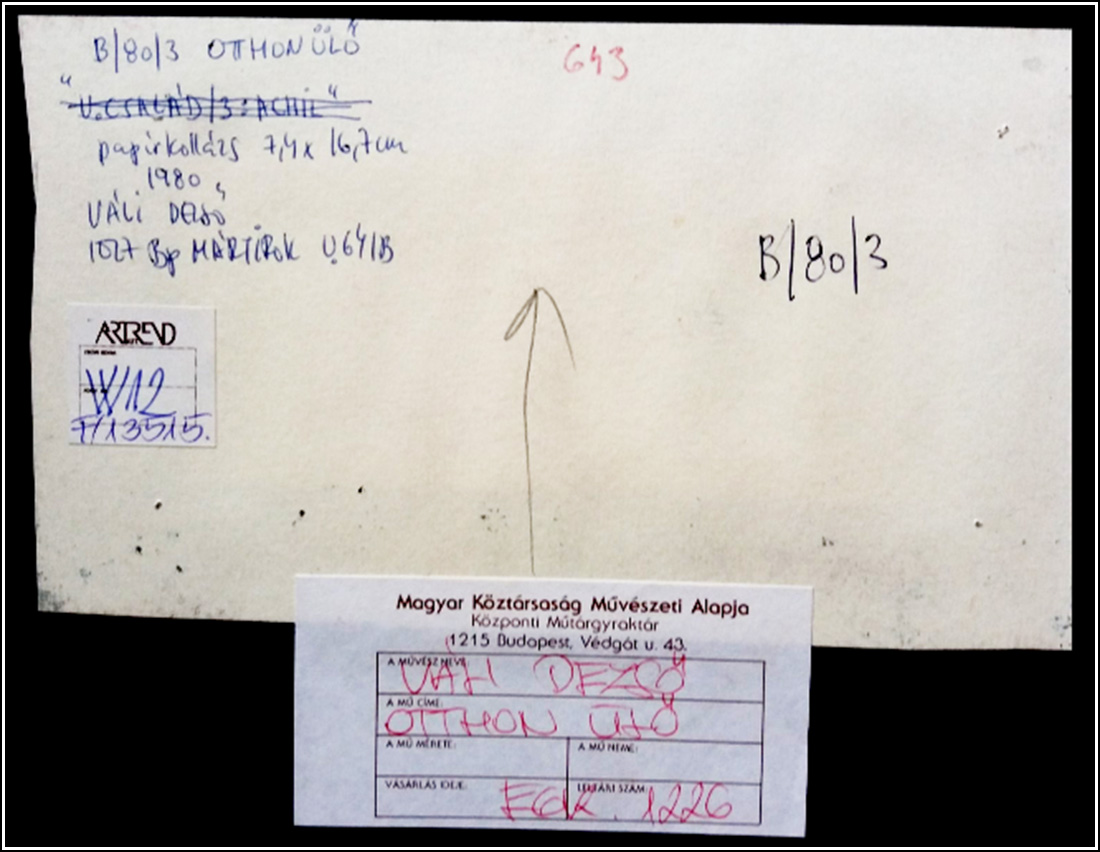 B/80/3 OTTHON ÜLŐ
643
"V. CSALÁD/3: ACHIL"
papírkollázs 7,4 x 16,7 cm
1980
VÁLI DEZSŐ
1027 Bp MÁRTÍROK U. 64/B
B/80/3
ARTREND
W/12
T/13515.
Magyar Köztársaság Művészeti Alapja
Központi Műtárgyraktár
1215 Budapest, Védgát u. 43.
A MŰVÉSZ NEVE: VÁLI DEZSŐ
A MŰ CÍME:
OTTHON ÜLŐ
A MŰ MÉRETE: A MŰ NEME:
VÁSÁRLÁS IDEJE: LELTÁRI SZÁM:
1226